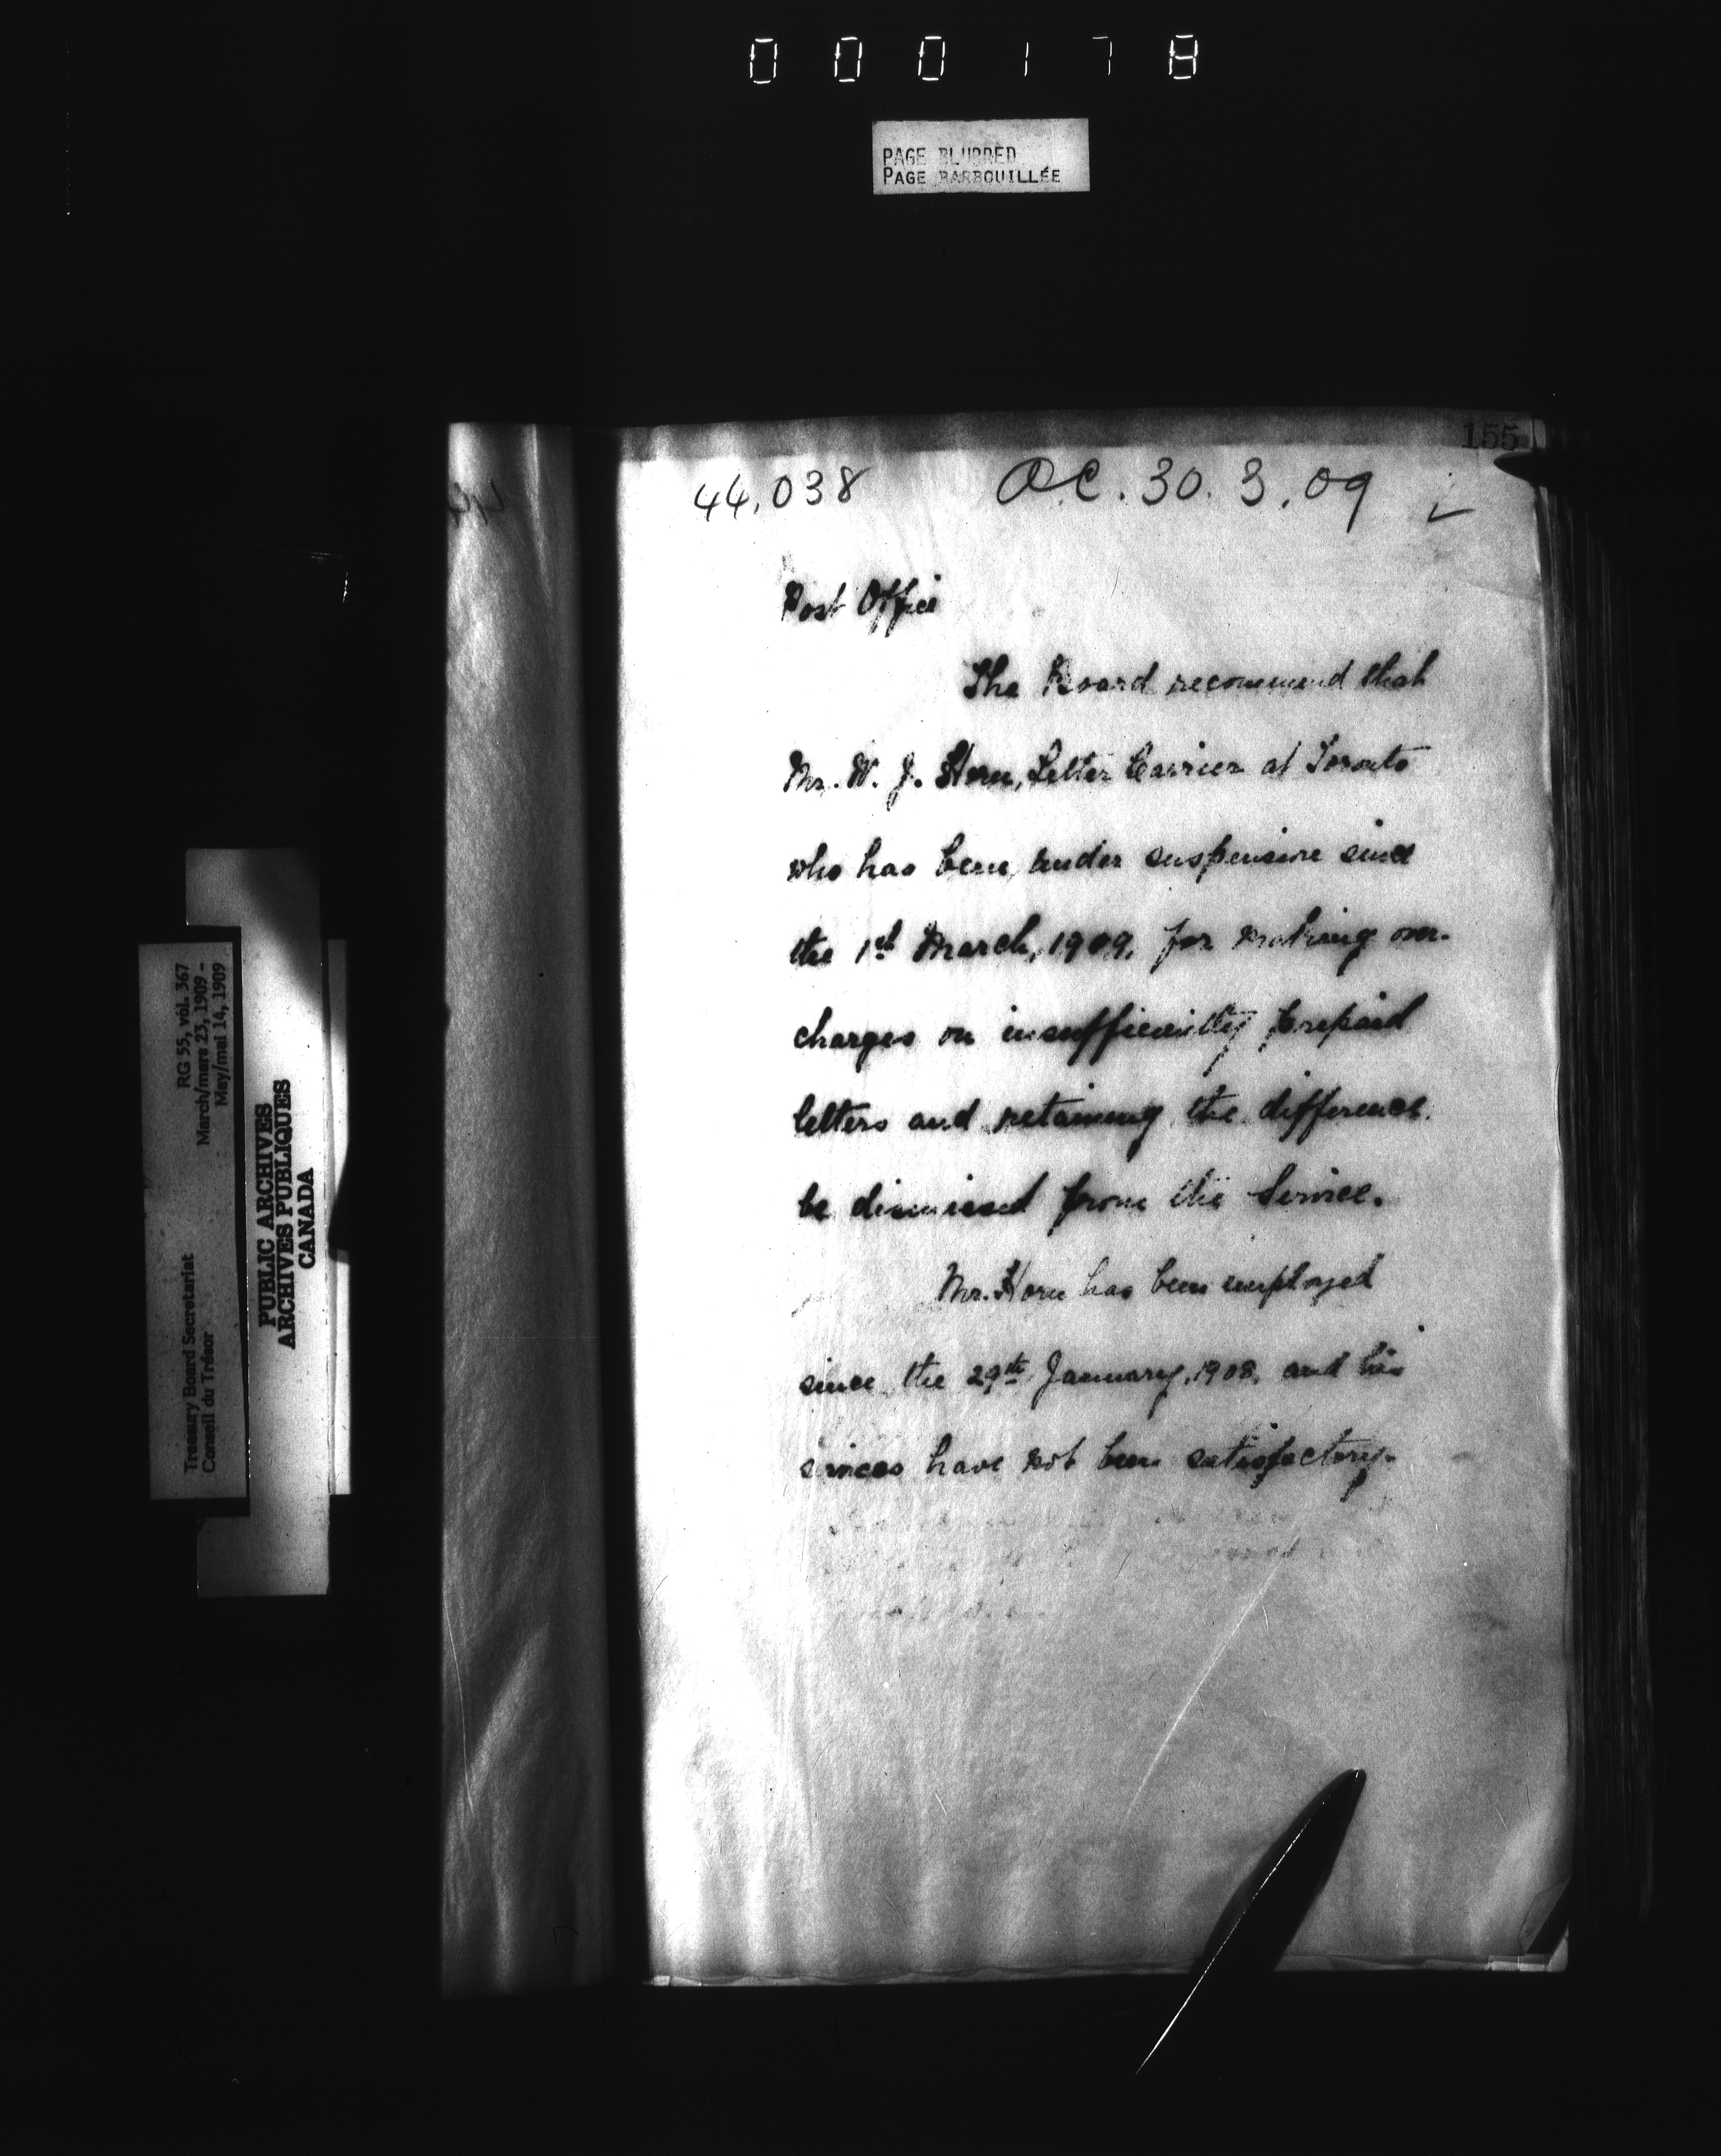 000178
PAGE BLURRED
PAGE BARBOUILLÉE
155
44,038 OC. 30. 3. 09
Post Office
The Board recommend that
Mr. W. J. Horn, Letter Carrier at Toronto
who has been under suspension since
the 1st March, 1909, for making over-
charges on insufficiently prepaid
letters and retaining the difference.
be dismissed from the Service.
Mr. Horn has been employed
since the 29th January, 1908, and his
services have not been satisfactory.
RG 55, vol. 367
March/mars 23, 1909 -
May/mai 14, 1909
Treasury Board Secretariat
Conseil du Trésor
PUBLIC ARCHIVES
ARCHIVES PUBLIQUES
CANADA